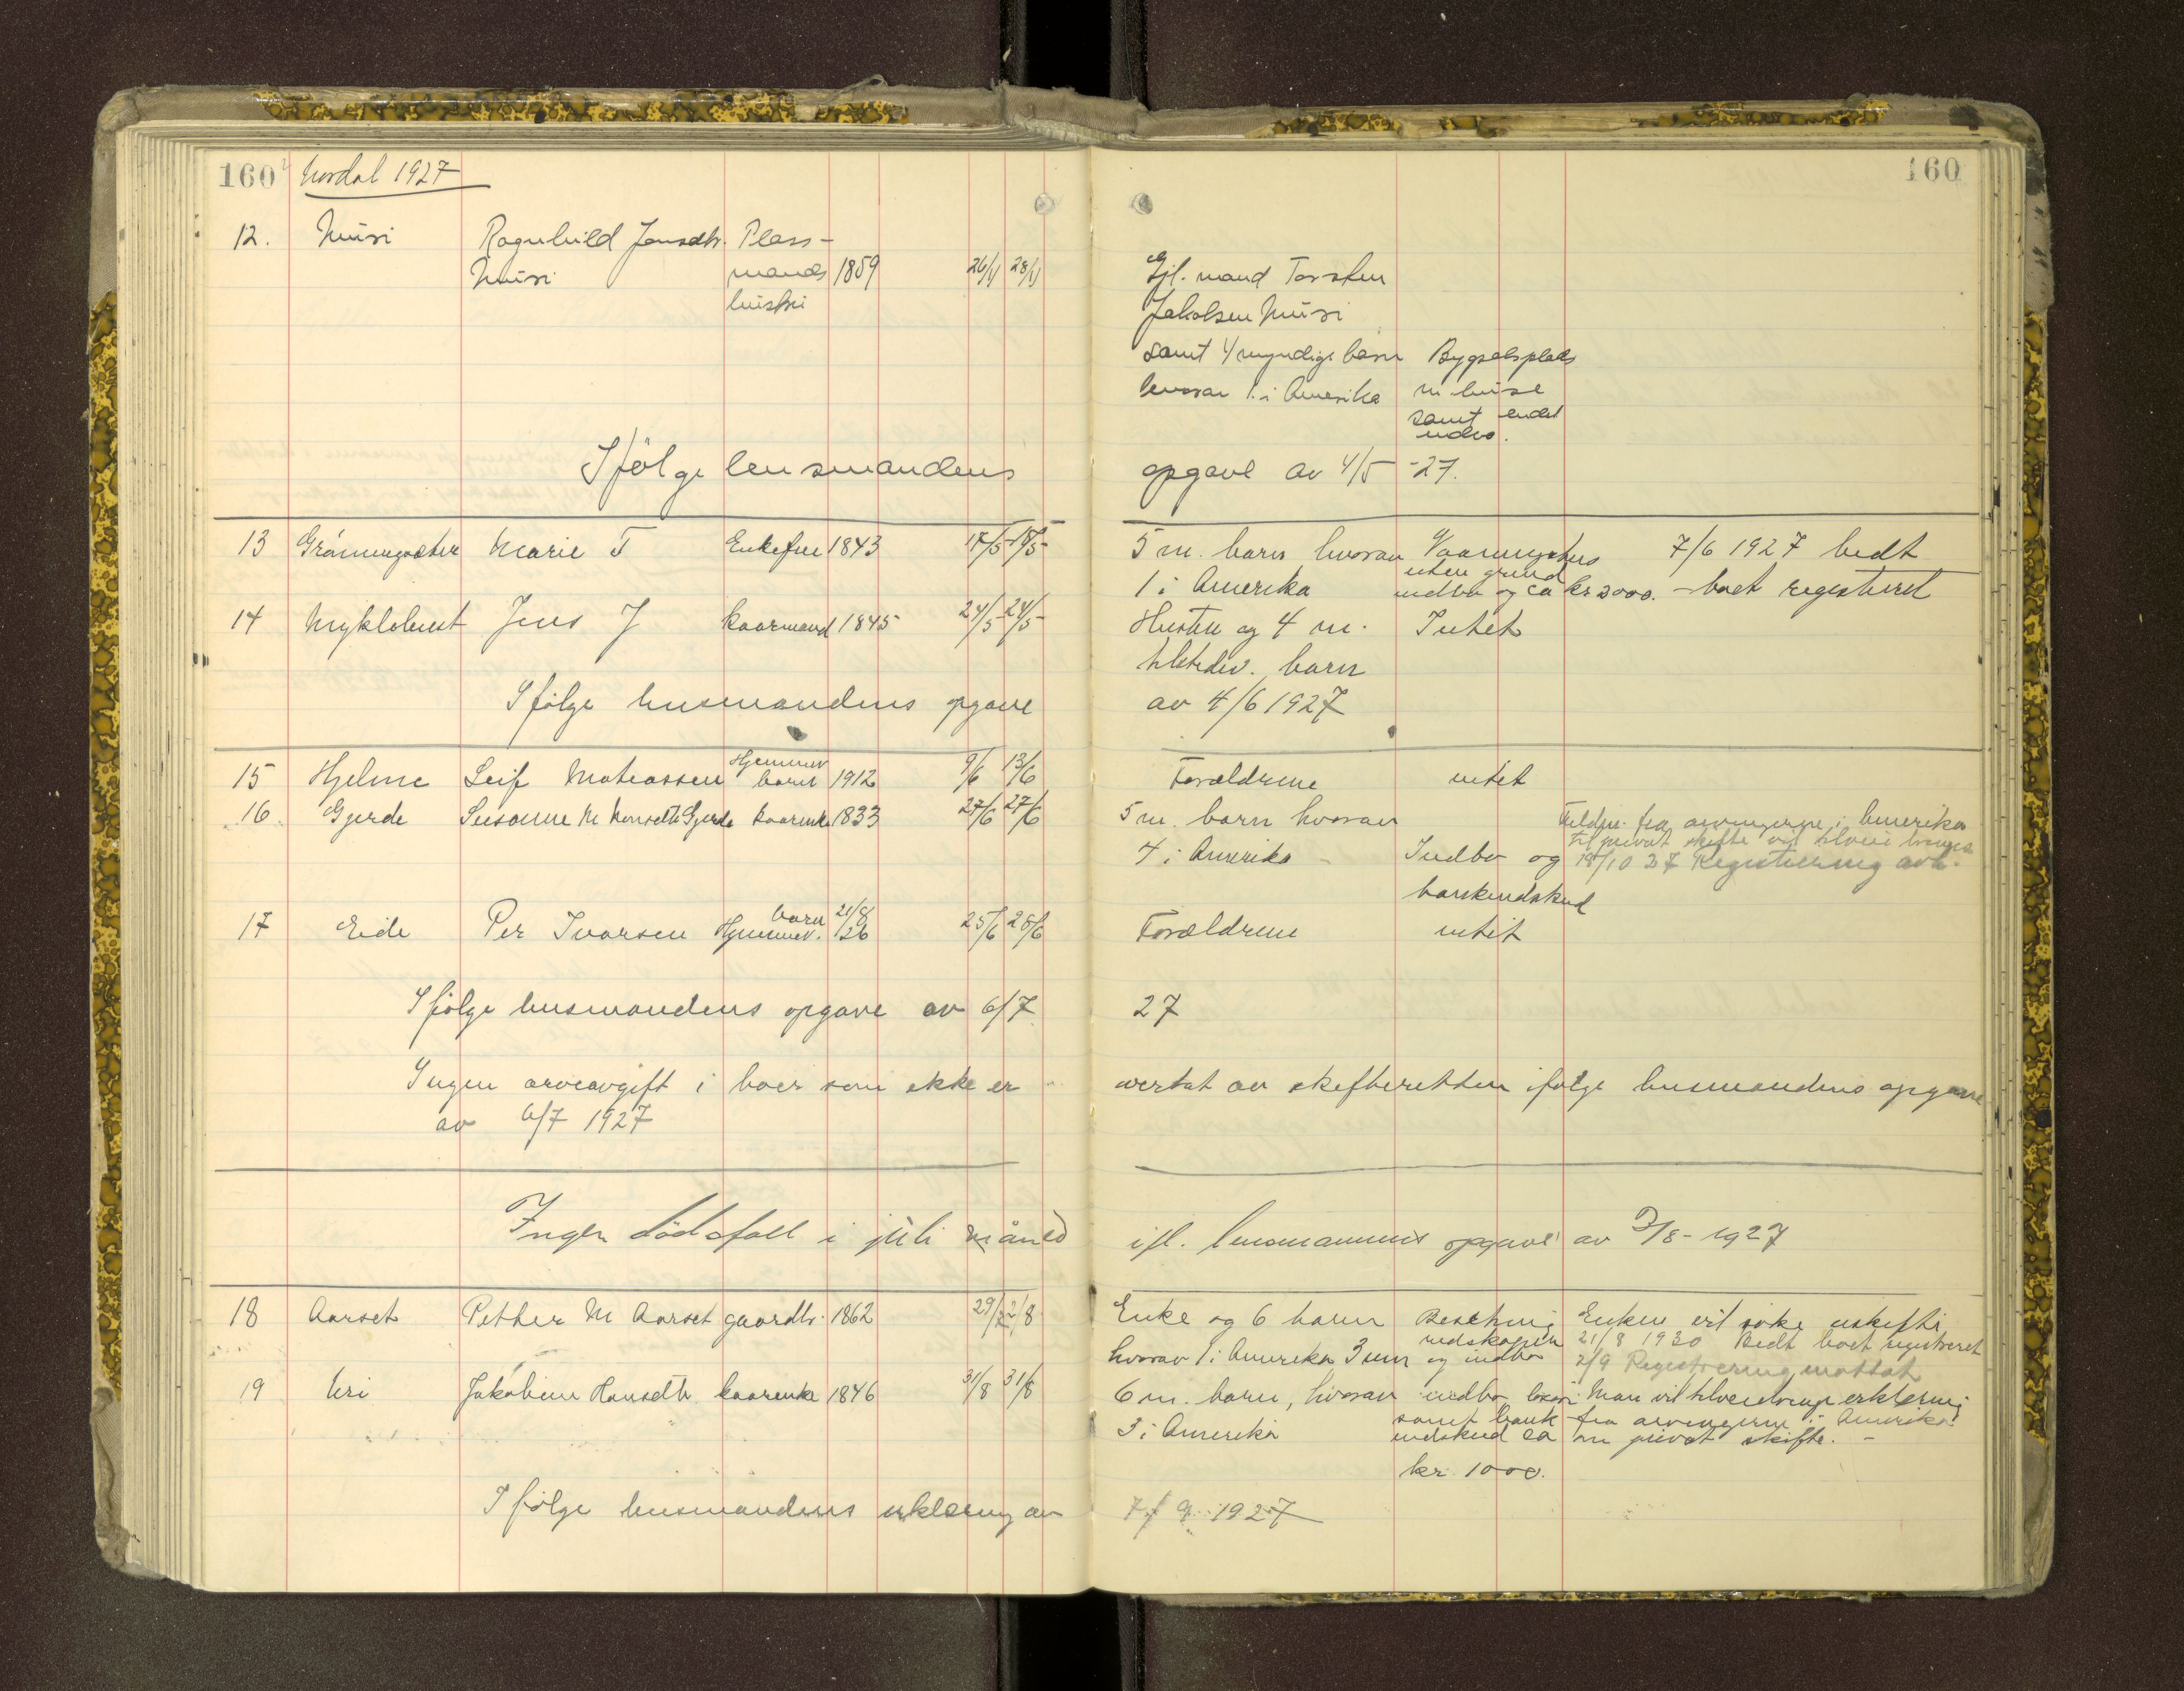 160 Nordal 1927
160
12. Muri Ragnhild Jensdtr. Plass-
Muri mands 1859 26/4 28/4 Gjl. mand Torsten
huistru Jakobsen Muri
samt 4 myndige barn Bygselsplads
hvorav 1 i Amerika m huse
samt endel
indbo.
Ifölge lensmandens opgave av 4/5 -27.
13 Grönningsæter Marie T Enkefru 1843 17/5 18/5 5 m. barn hvorav Vaaningshus 7/6 1927 bedt
1 i Amerika uten grund
indbo og ca kr 2000. - boet registreret
14 Myklebust Jens J kaarmand 1845 24/5 24/5 Hustru og 4 m. Intet
tilstedev. barn
Ifölge lensmandens opgave av 4/6 1927
15 Hjelme Leif Mateassen Hjemmev. barn 1912 9/6 13/6 Forældrene intet
16 Gjerde Susanne M Monsdtr Gjerde kaarenke 1833 27/6 27/6 5 m. barn hvorav Fuldm. fra arvingerne i Amerika
til privat skifte vil tilveie bringes
4 i Amerika - Indbo og 19/10 27 Registrering avh.
bankindskud
17 Eide Per Ivarsen Hjemmev. barn 21/8 26 25/6 28/6 Forældrene intet
Ifölge lensmandens opgave av 6/7 27
Ingen arveavgift i boer som ikke er overtat av skifteretten ifølge lensmandens opgave
av 6/7 1927
Ingen dödsfall i juli måned ifl. lensmannens opgave av 2/8 - 1927
18 Aarset Petter M Aarset gaardbr. 1862 29/7 2/8 Enke og 6 barn Besetning Enken vil søke uskifte
redskapen 21/8 1930 Bedt boet registreret
hvorav 1 i Amerika 3 um og indbo 2/9 Registrering mottat
19 Uri Jakobine Hansdtr kaarenke 1846 31/8 31/8 6 m. barn, hvorav indbo løsøre Man vil tilveiebringe erklæring
3 i Amerika samt bank- fra arvingerne i Amerika
indskud ca om privat skifte. -
kr. 1000.
Ifölge lensmandens erklæring av 7/9 1927